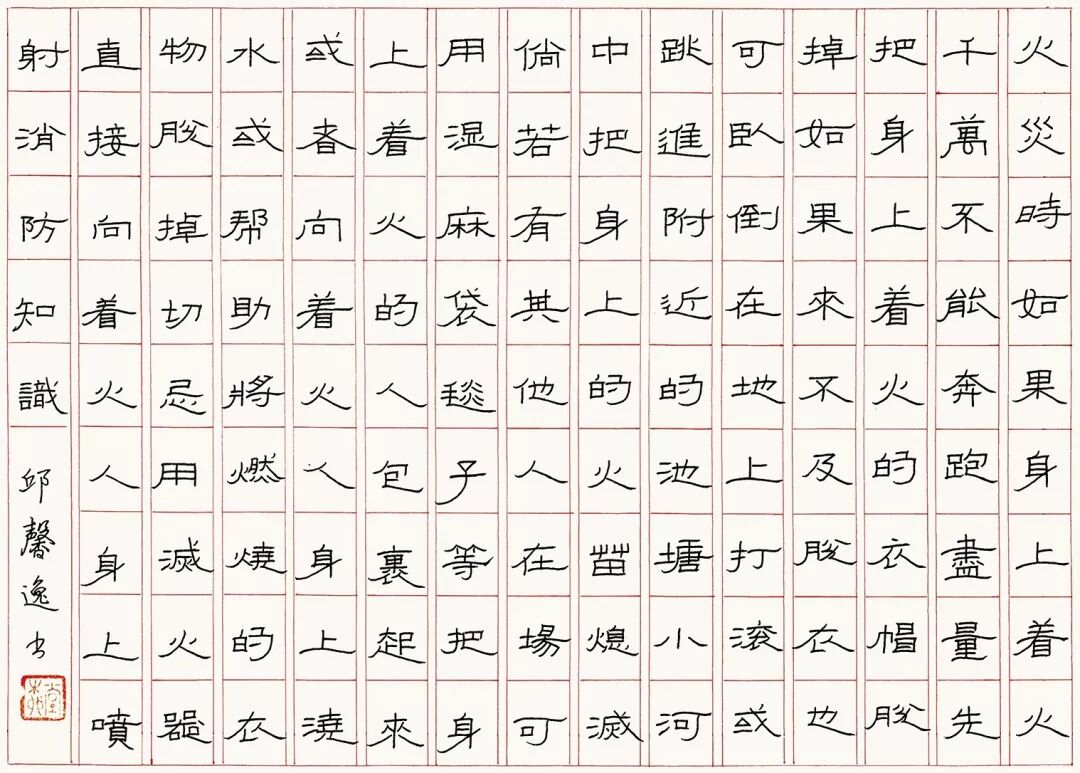 火災時如果身上着火
千萬不能奔跑盡量先
把身上着火的衣帽脫
掉如果來不及脫衣也
可臥倒在地上打滾或
跳進附近的池塘小河
中把身上的火苗熄滅
倘若有其他人在場可
用湿麻袋毯子等把身
上着火的人包裹起來
或者向着火人身上澆
水或帮助將燃燒的衣
物脫掉切忌用滅火器
直接向着火人身上噴
射消防知識 邱馨逸书